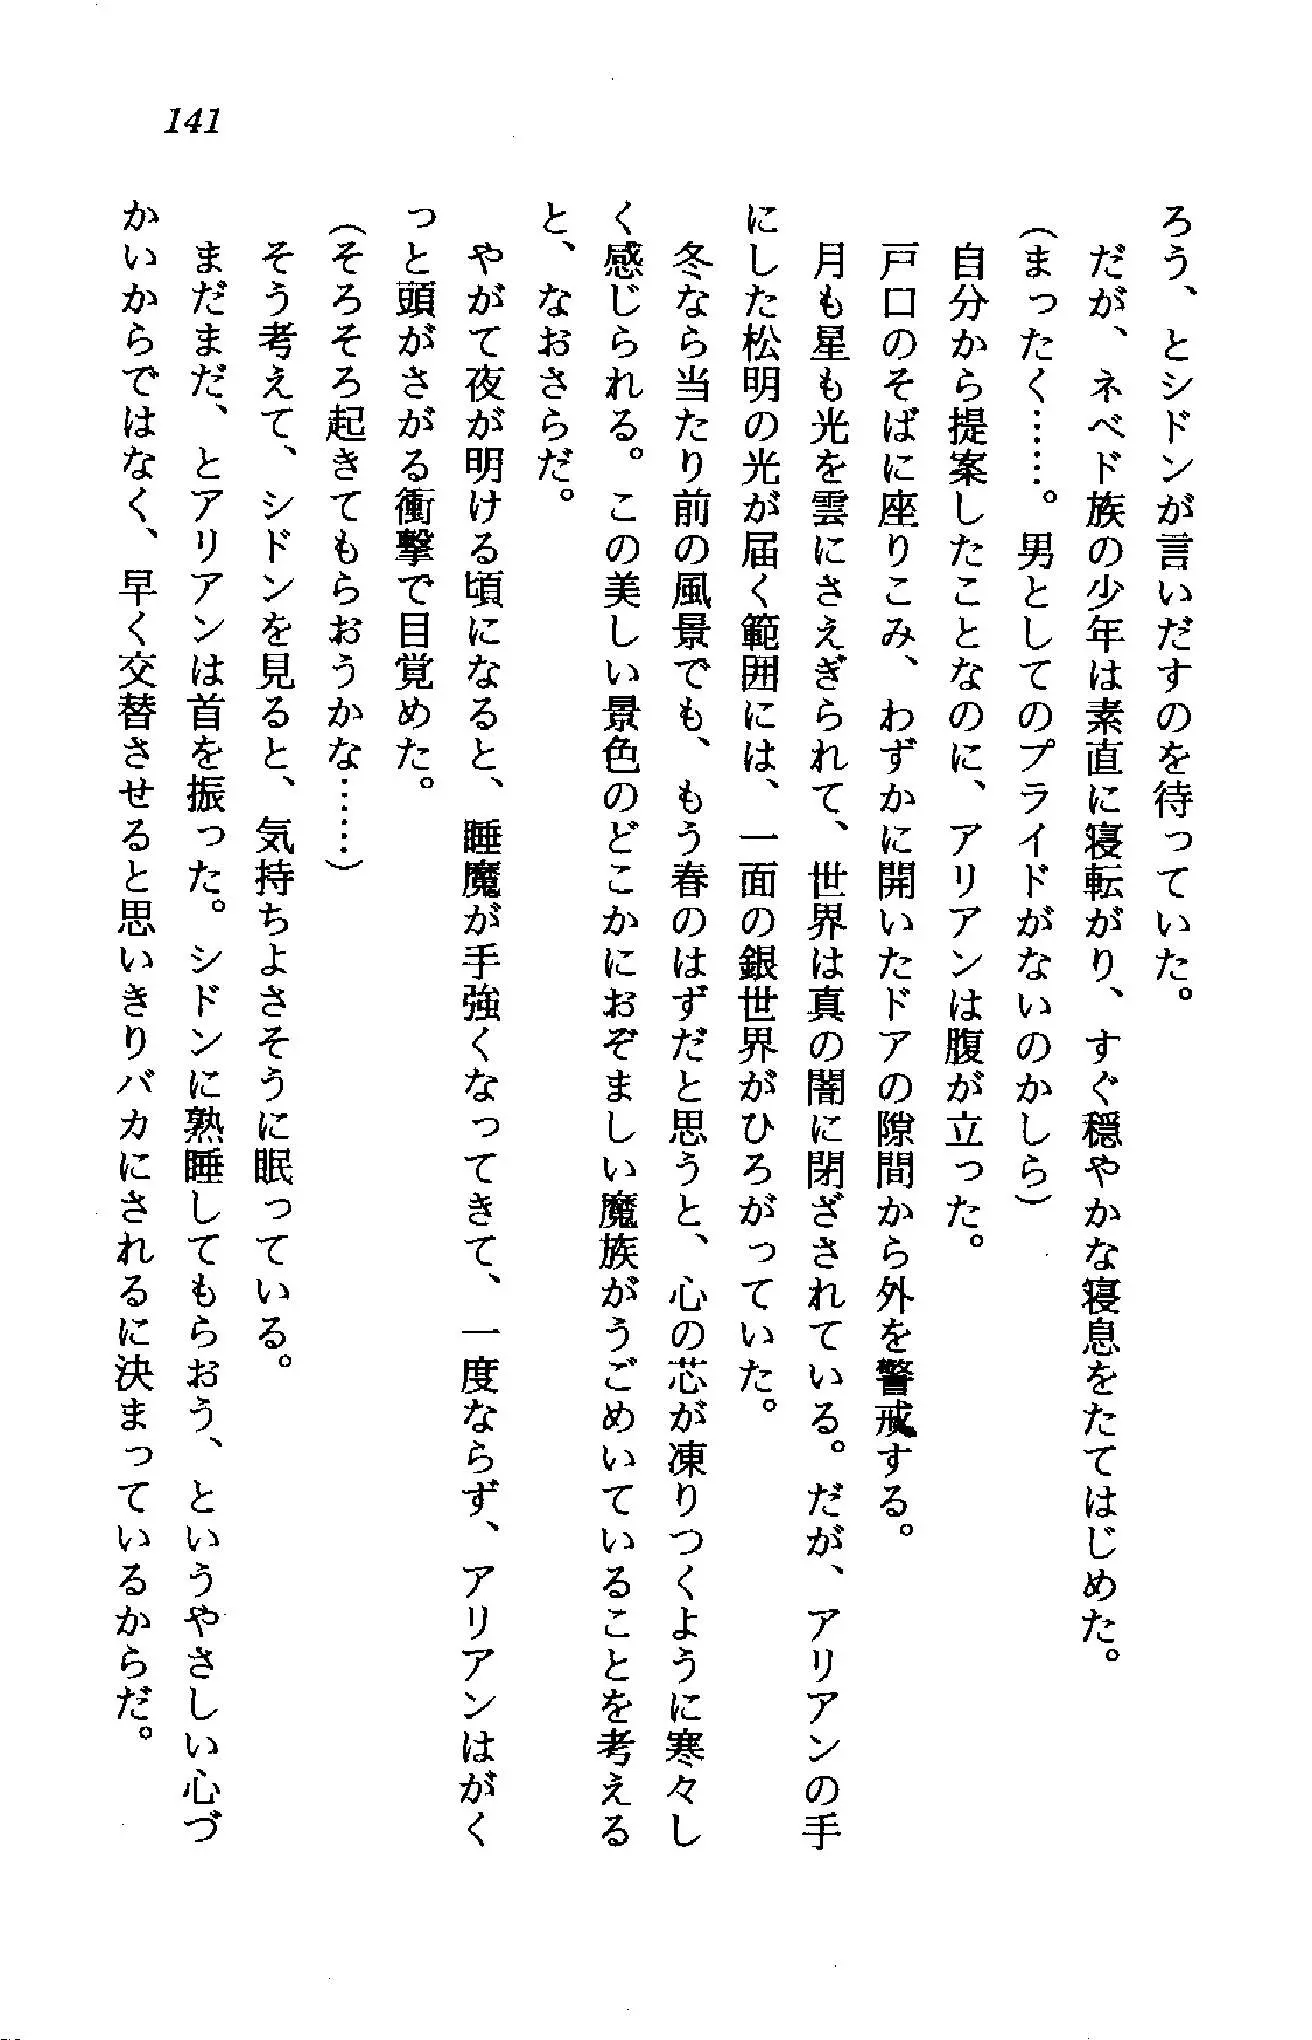 141
ろう、とシドンが言いだすのを待っていた。
だが、ネベド族の少年は素直に寝転がり、すぐ穏やかな寝息をたてはじめた。
(まったく……。男としてのプライドがないのかしら)
自分から提案したことなのに、アリアンは腹が立った。
戸口のそばに座りこみ、わずかに開いたドアの隙間から外を警戒する。
月も星も光を雲にさえぎられて、世界は真の闇に閉ざされている。だが、アリアンの手
にした松明の光が届く範囲には、一面の銀世界がひろがっていた。
冬なら当たり前の風景でも、もう春のはずだと思うと、心の芯が凍りつくように寒々し
く感じられる。この美しい景色のどこかにおぞましい魔族がうごめいていることを考える
と、なおさらだ。
やがて夜が明ける頃になると、睡魔が手強くなってきて、一度ならず、アリアンはがく
っと頭がさがる衝撃で目覚めた。
(そろそろ起きてもらおうかな……)
そう考えて、シドンを見ると、気持ちよさそうに眠っている。
まだまだ、とアリアンは首を振った。シドンに熟睡してもらおう、というやさしい心づ
かいからではなく、早く交替させると思いきりバカにされるに決まっているからだ。